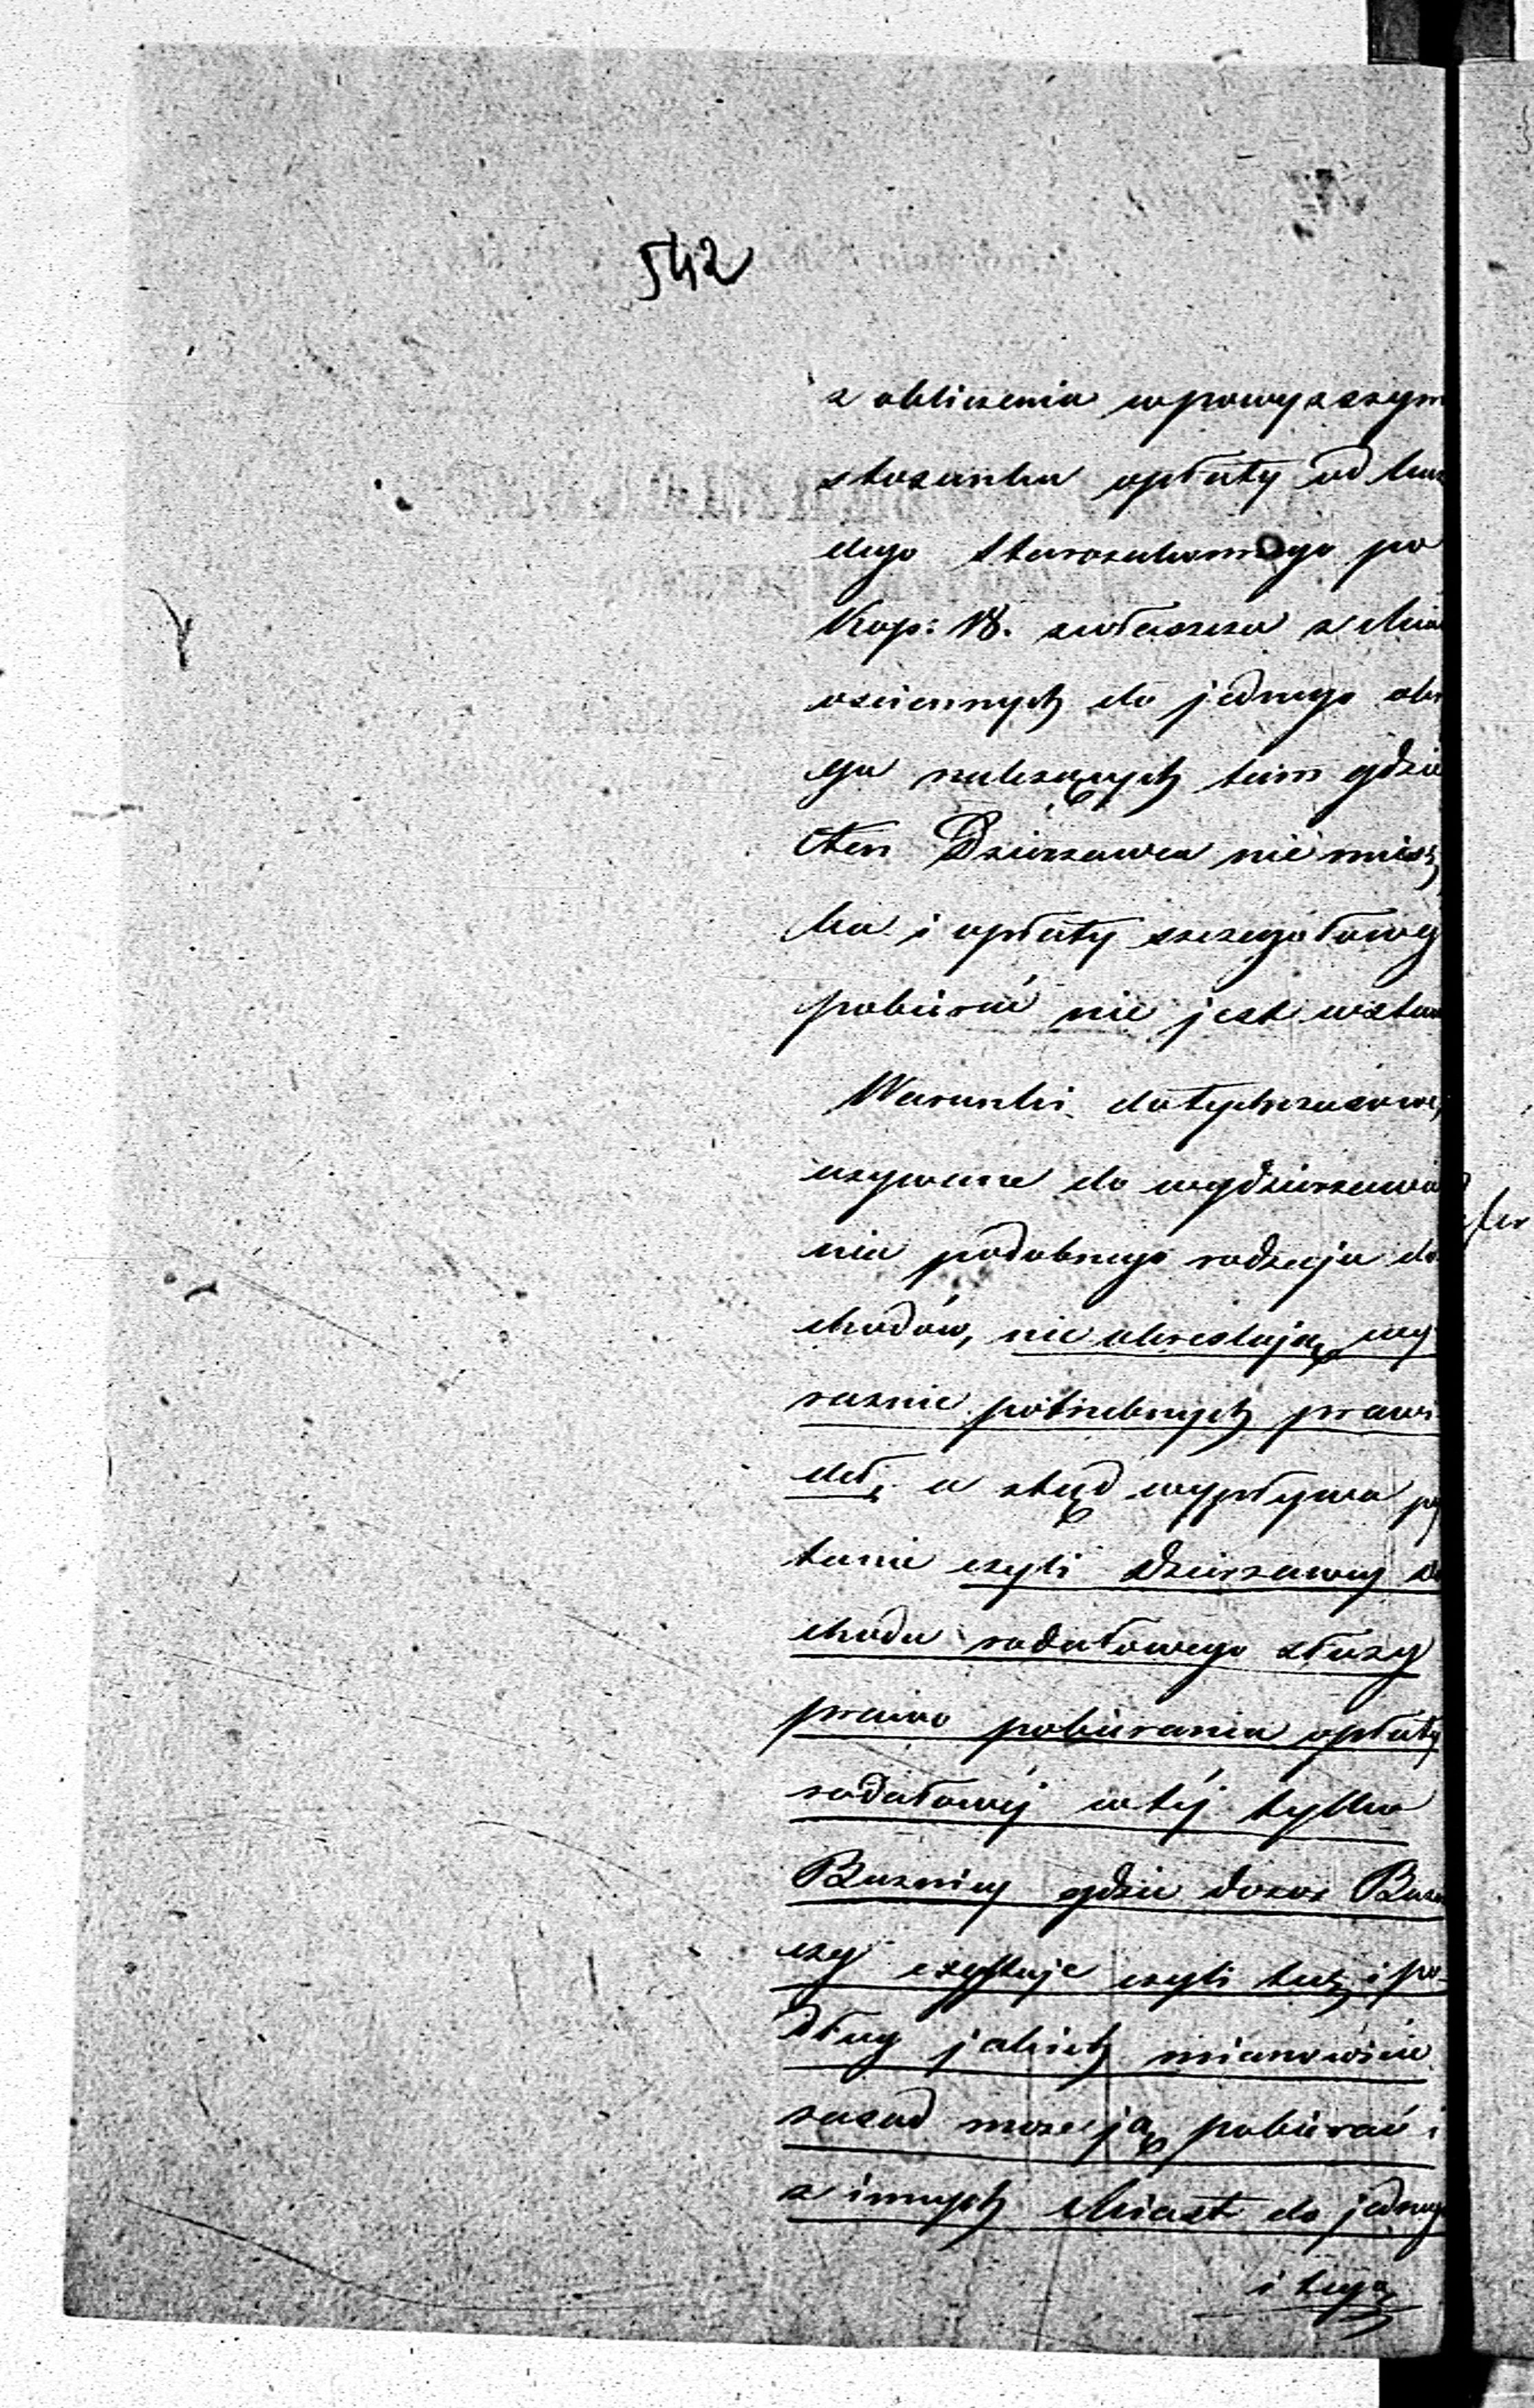 542
z obliczenia w powyzszym
stosunku opłaty od kaz
dego Starozakonnego po
Kop: 18. zwłaszcza z Mia
osciennych do jednego okr
ęgu nalezących tam gdzie
ten Dzierzawca nie miesz
ka i opłaty szczegółowej
pobierać nie jest wstan
Warunki dotychczasowe
uzywane do wydzierzawia
nia podobnego rodzaju do
chodów, nie okreslają wy
raznie potrzebnych prawi
deł, a ztąd wypływa py
tanie czyli Dzierzawcy do
chodu rodałowego słuzy
prawo pobierania opłaty
rodałowéj w téj tylko
Buznicy gdzie dozor Buzni
czy exystuje czyli tez i po-
dług jakich mianowicie
zasad moze ją pobierać i
z innych Miast do jednego
i tego